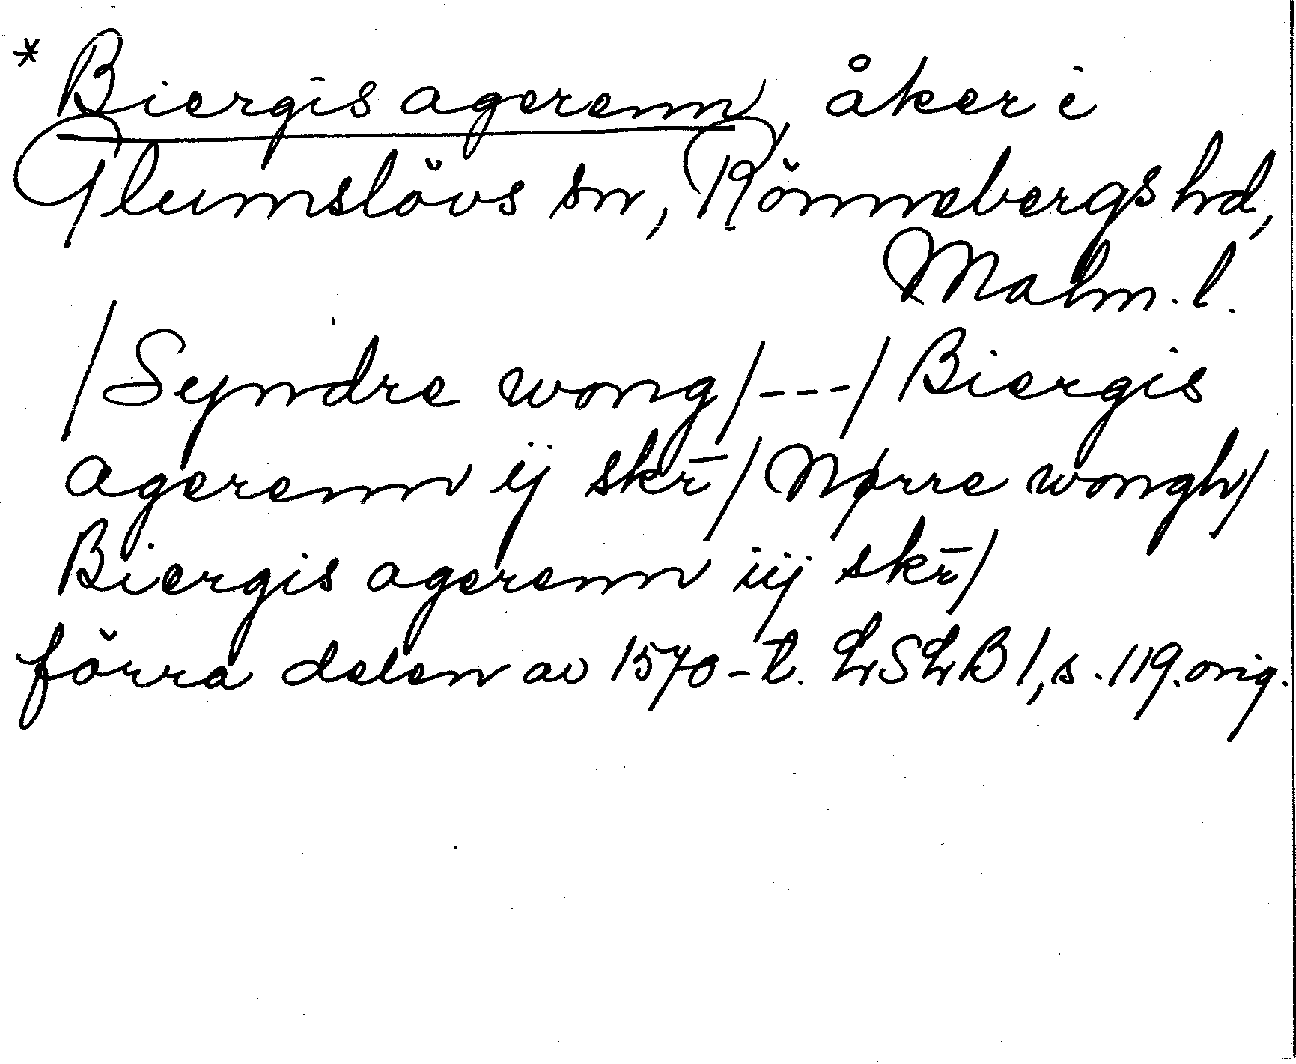 * Biergis agerenn, åker i
Glumslövs sn, Rönnebergs hd,
Malm. l.
/Syndre wong/---/Biergis
agerenn ij skr̄/Nørre wongh/
Biergis agerenn iij skr̄/
förra delen av 1570-t. LSLB 1, s. 119. orig.